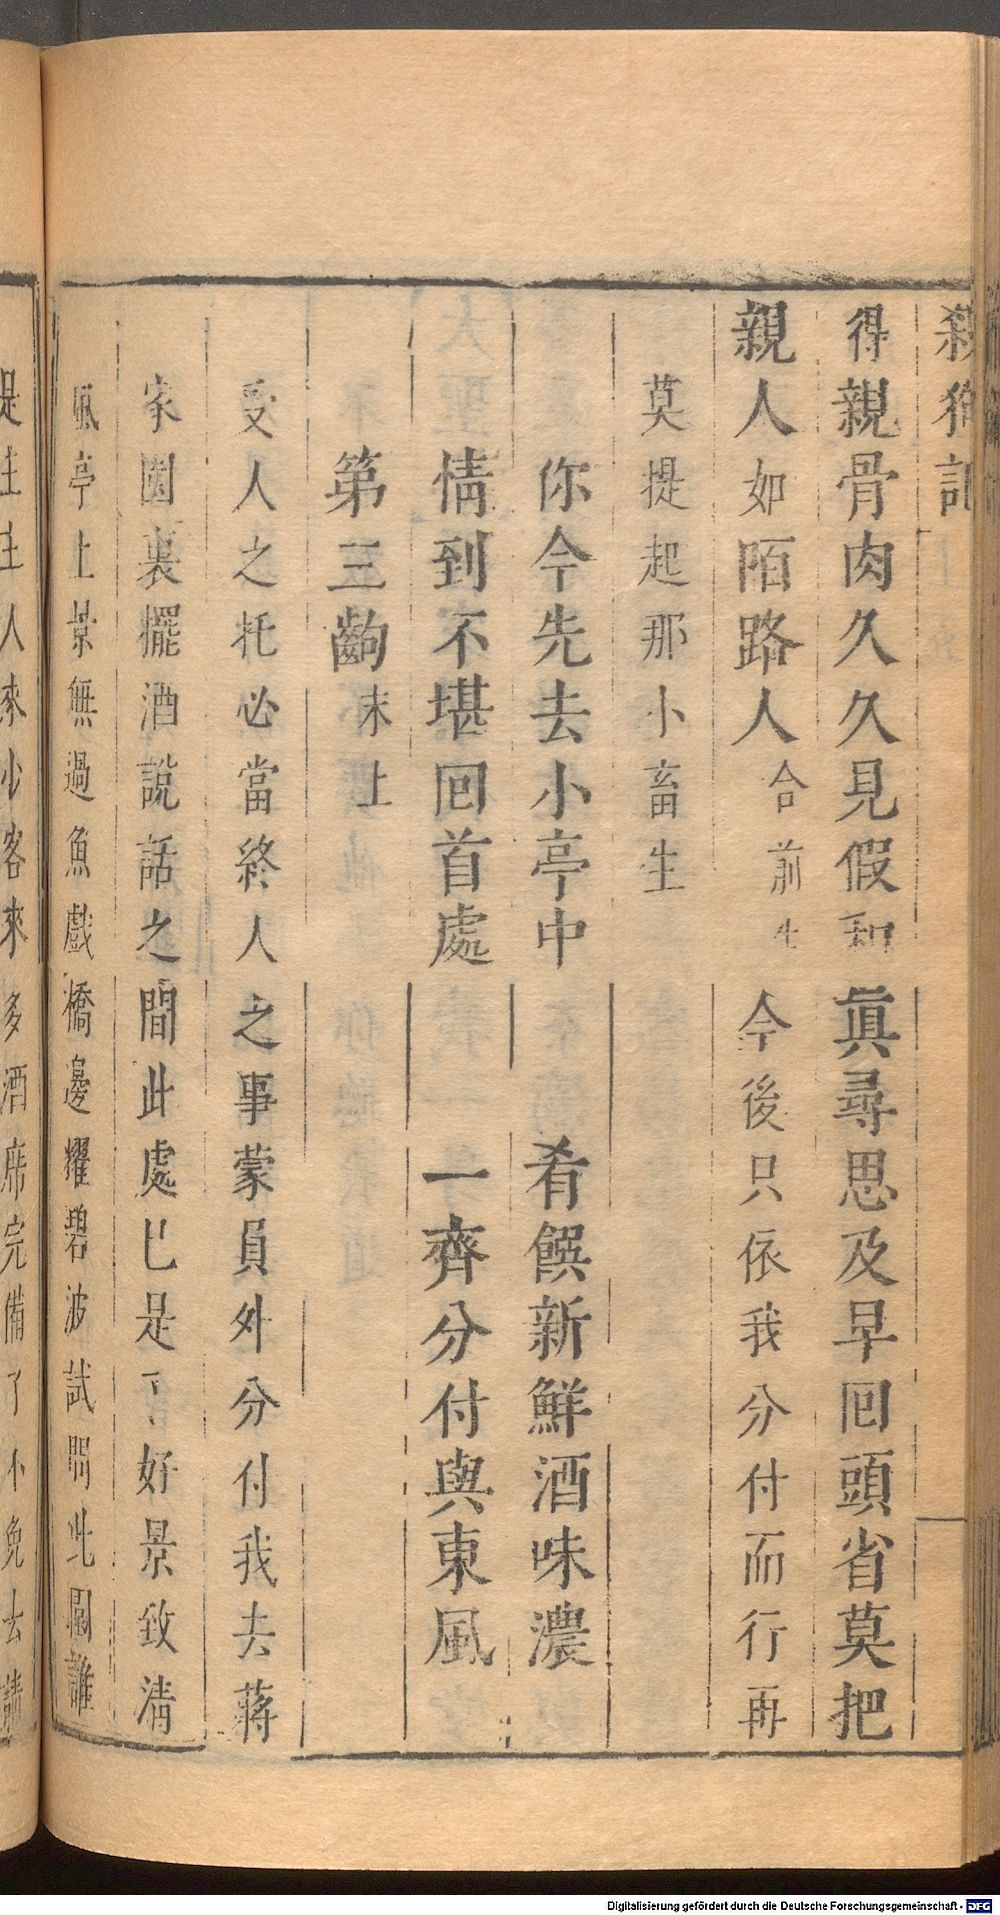 殺狗記
得親骨肉久久見假和真尋思及早回頭省莫把
親人如陌路人合前生今後只依我分付而行再
莫提起那小畜生
你今先去小亭中 肴饌新鮮酒味濃
情到不堪回首處 一齊分付與東風
第三齣末上
受人之托必當終人之事蒙員外分付我去蔣
家園裏擺酒說話之間此處已是了好景致清
風亭上景無過魚戲橋邊耀碧波試問此園誰
是主主人來少客來多酒席完備了不免去請
Digitalisierung gefördert durch die Deutsche Forschungsgemeinschaft - DFG